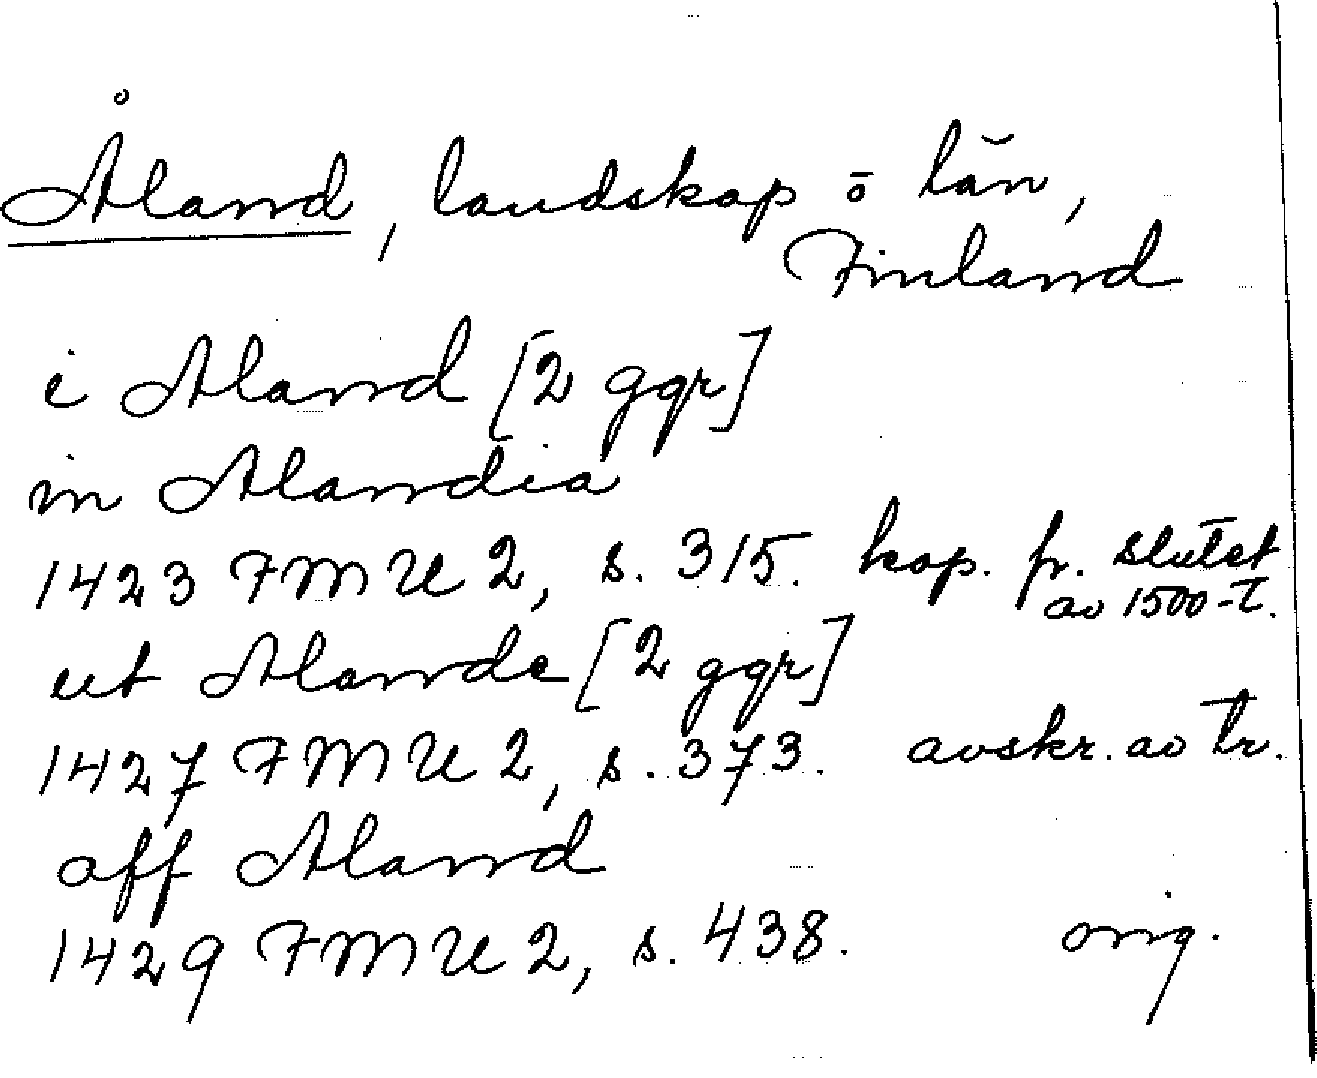 Åland, landskap o län,
Finland
i Aland [2 ggr]
in Alandia
1423 FMU 2, s. 315. kop. fr. slutet
av 1500-t.
ut Alande [2 ggr]
1427 FMU 2, s. 373. avskr. av tr.
aff Aland
1429 FMU 2, s. 438. orig.